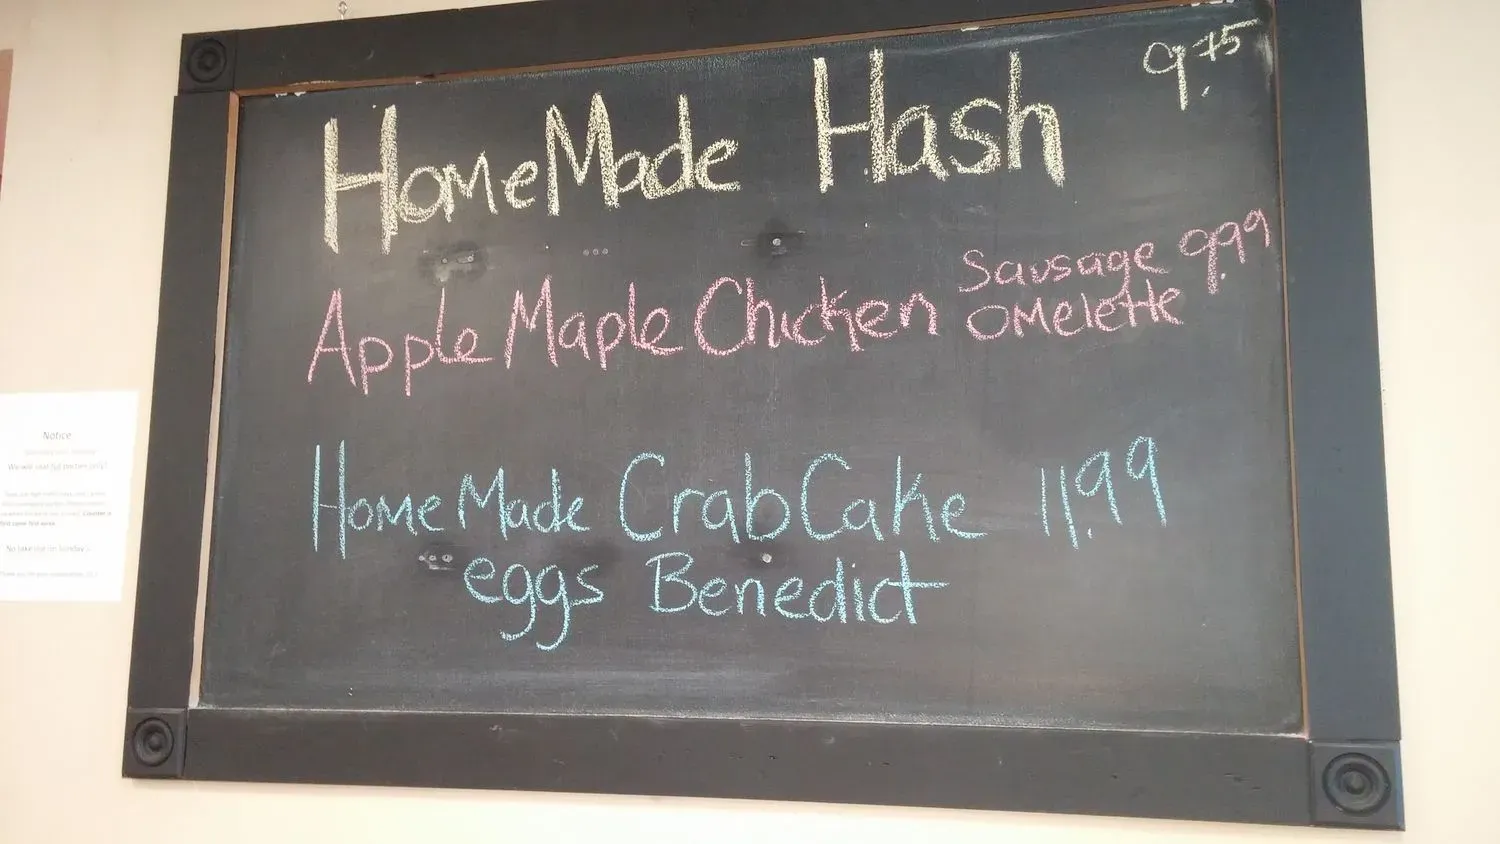 HomeMade Hash 9.75
Apple Maple Chicken Sausage 9.99
OMelette
HomeMade CrabCake 11.99
eggs Benedict
Notice
No take out on Sunday's